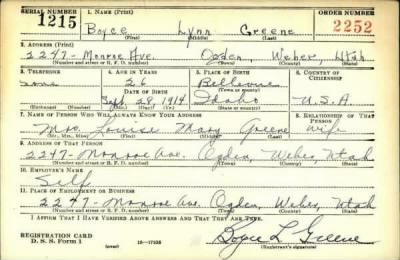 SERIAL NUMBER 1. NAME (Print) ORDER NUMBER
1215 Boyce Lynn Greene 2252
(First) (Middle) (Last)
2. ADDRESS (Print)
2247- Monroe Ave. Ogden, Weber, Utah
(Number and street or R. F. D. number) (Town) (County) (State)
3. TELEPHONE 4. AGE IN YEARS 5. PLACE OF BIRTH 6. COUNTRY OF CITIZENSHIP
none 26 Bellevue
DATE OF BIRTH (Town or county)
Sept. 28, 1914 Idaho U.S.A
(Exchange) (Number) (Mo.) (Day) (Yr.) (State or country)
7. NAME OF PERSON WHO WILL ALWAYS KNOW YOUR ADDRESS 8. RELATIONSHIP OF THAT PERSON
Mrs. Louise Mary Greene wife
(Mr., Mrs., Miss) (First) (Middle) (Last)
9. ADDRESS OF THAT PERSON
2247- Monroe Ave. Ogden, Weber, Utah
(Number and street or R. F. D. number) (Town) (County) (State)
10. EMPLOYER'S NAME
Self
11. PLACE OF EMPLOYMENT OR BUSINESS
2247- Monroe Ave. Ogden, Weber, Utah
(Number and street or R. F. D. number) (Town) (County) (State)
I AFFIRM THAT I HAVE VERIFIED ABOVE ANSWERS AND THAT THEY ARE TRUE.
REGISTRATION CARD
D. S. S. Form 1 16-17105 Boyce L Greene
(Registrant's signature)